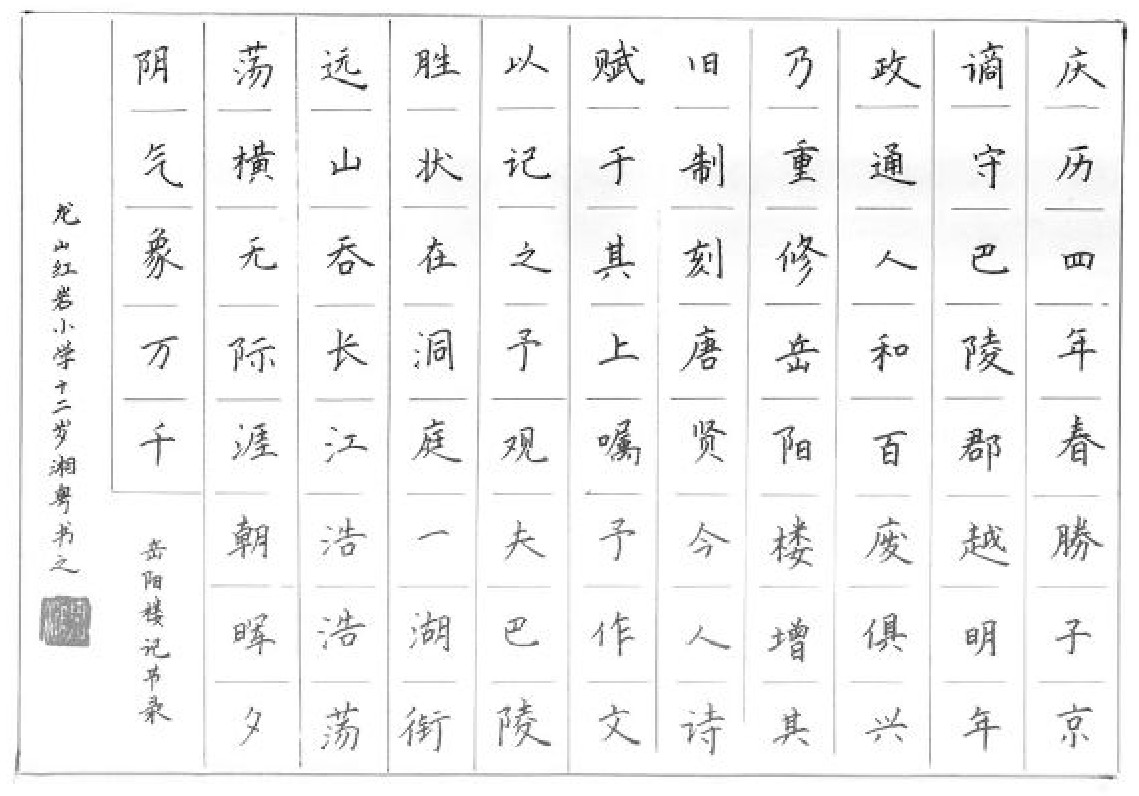 庆历四年春勝子京
谪守巴陵郡越明年
政通人和百废俱兴
乃重修岳阳楼增其
旧制刻唐贤今人诗
赋于其上嘱予作文
以记之予观夫巴陵
胜状在洞庭一湖衔
远山吞长江浩浩荡
荡横无际涯朝晖夕
阴气象万千
岳阳楼记节录
龙山红岩小学十二岁湘粤书之